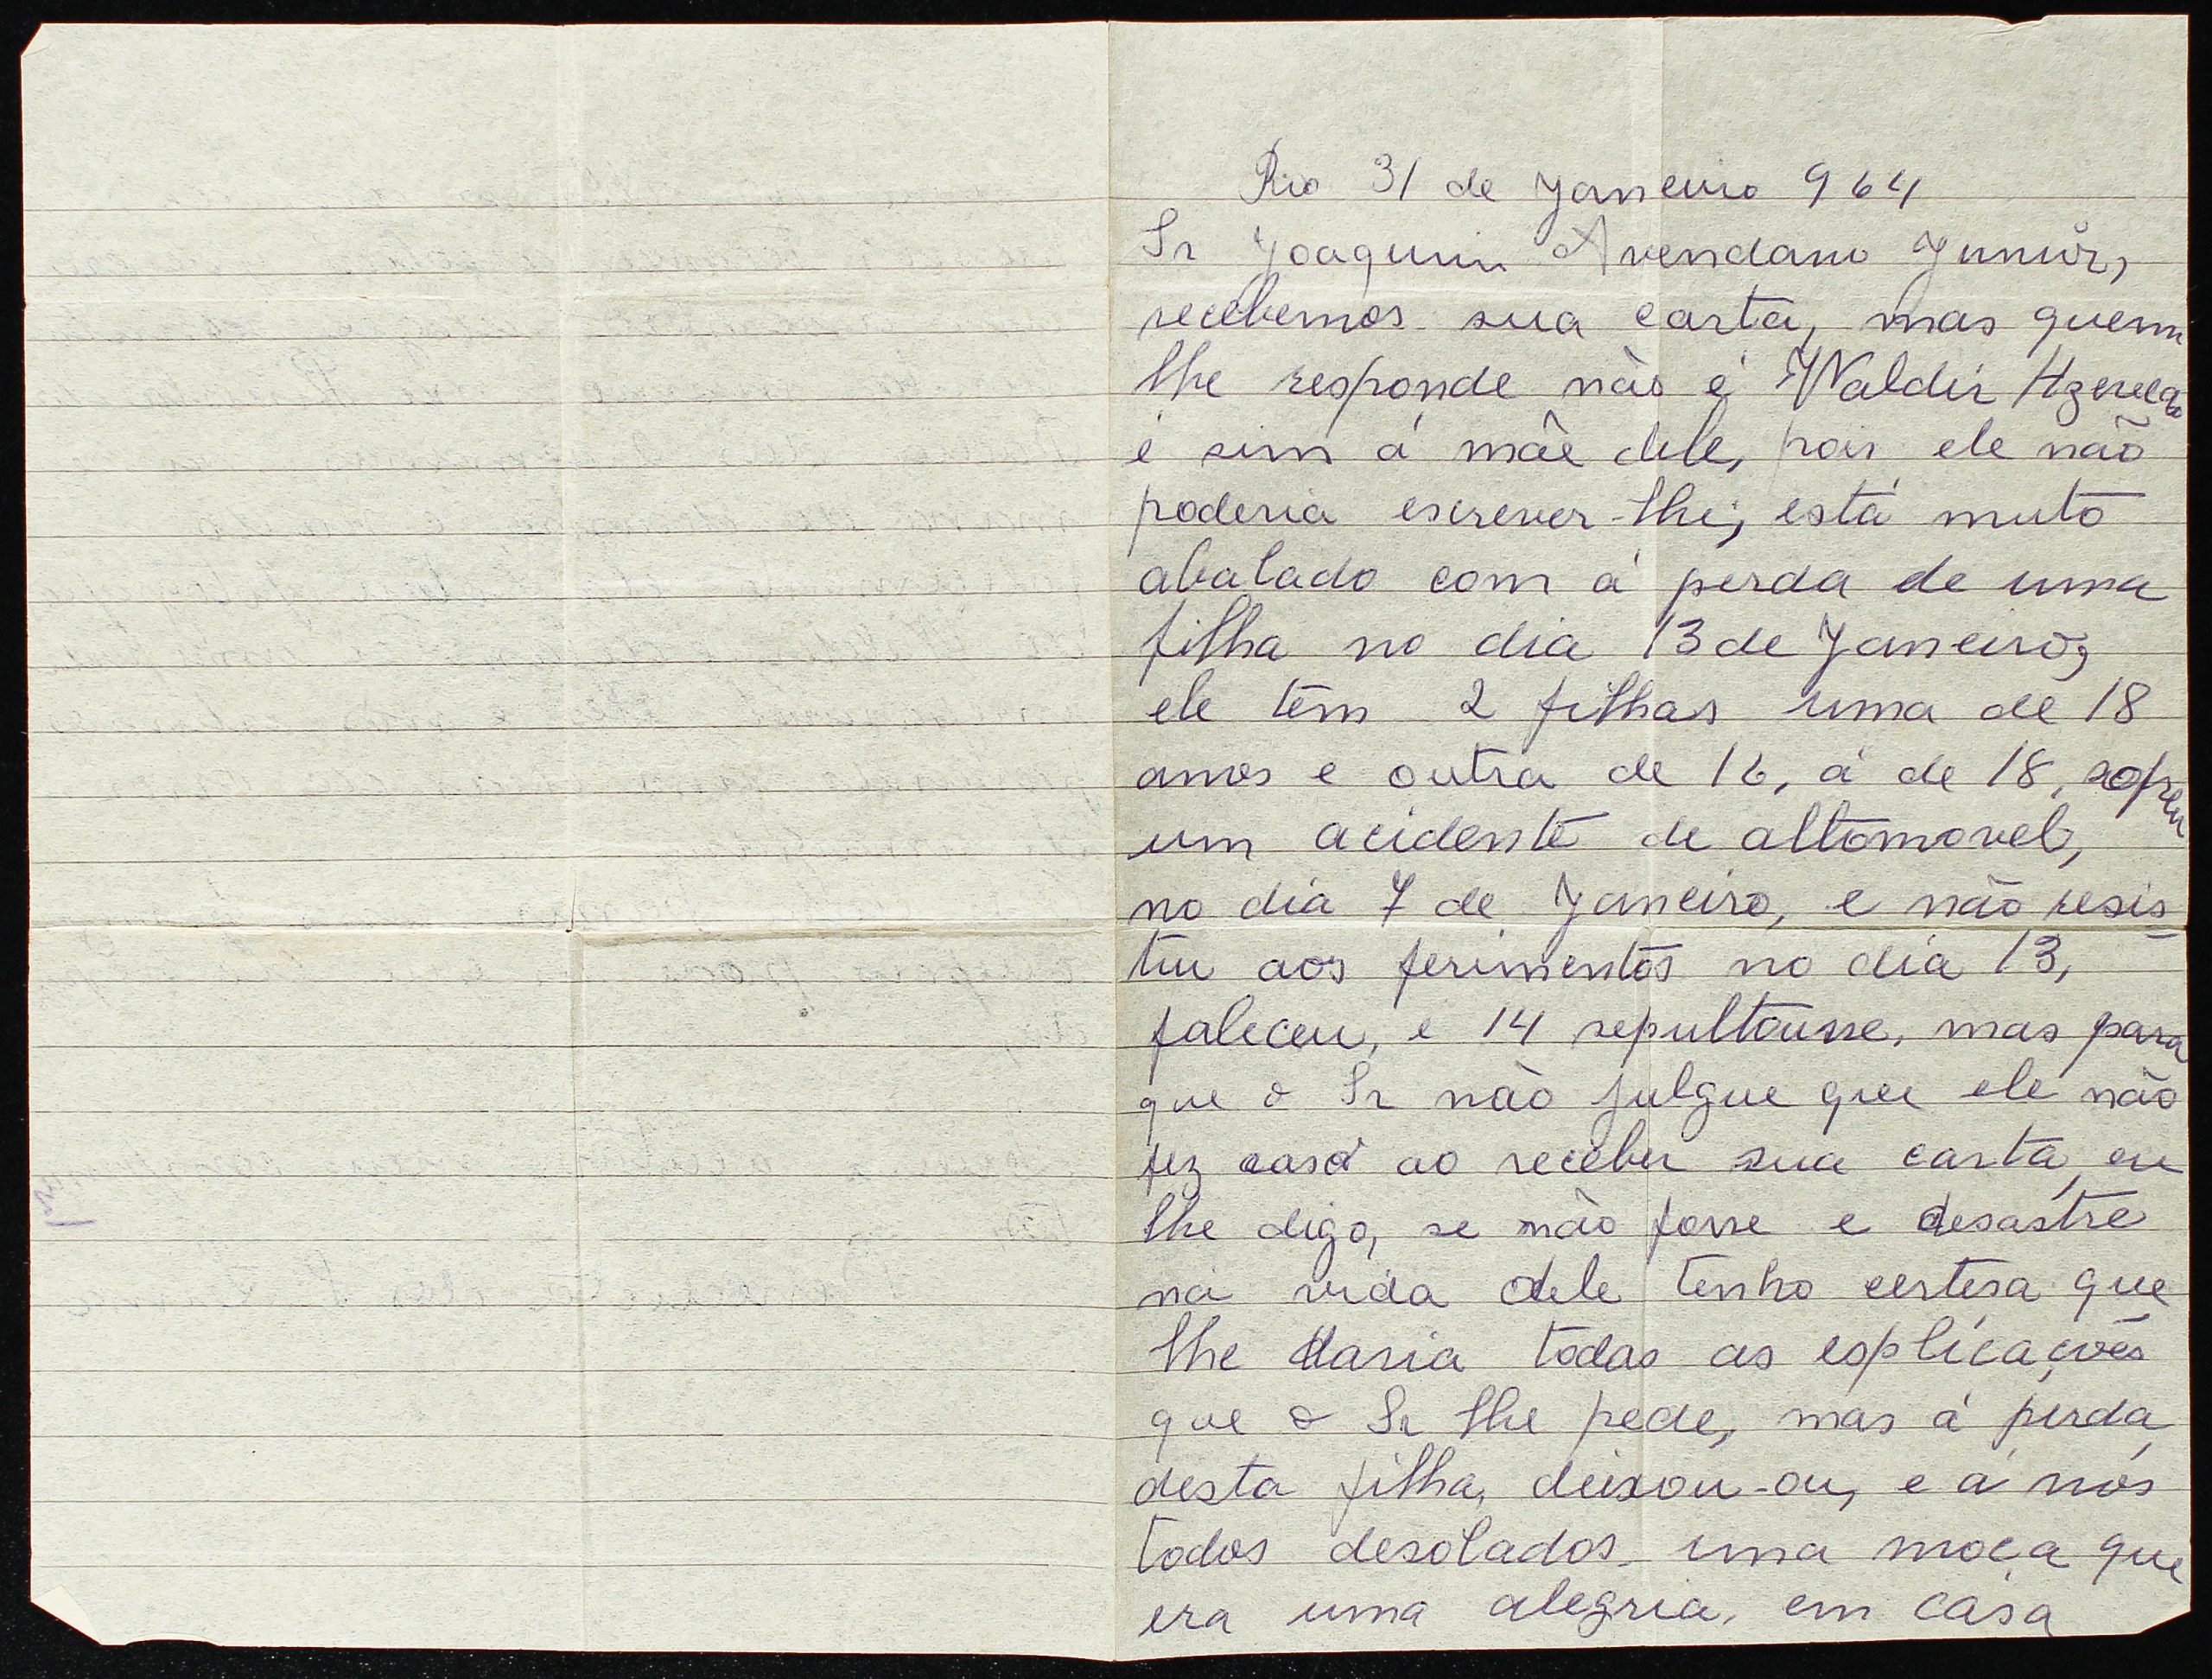 Rio 31 de Janeiro 964
Sr Joaquim Avendano Junior,
recebemos sua carta, mas quem
lhe responde não é Waldir Azevedo
é sim á mãe dele, pois ele não
poderia escrever-lhe, está muto
abalado com á perda de uma
filha no dia 13 de Janeiro,
ele têm 2 filhas uma de 18
anos e outra de 16, á de 18, sofreu
um acidente de altomovel,
no dia 7 de Janeiro, e não resis
tiu aos ferimentos no dia 13,
faleceu, e 14 sepultousse, mas para
que o Sr não julgue que ele não
fez caso ao receber sua carta, eu
lhe digo, se não fosse e desastre
na vida dele tenho certesa que
lhe daria todas as esplicações
que o Sr lhe pede, mas á perda
desta filha, deixou-ou, e á nós
todos desolados uma moça que
era uma alegria, em casa